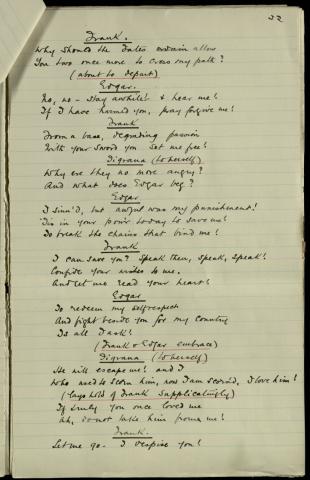 22
Frank.
Why should the Fates ordain allow
You two once more to cross my path?
(about to depart)
Edgar.
No, no – stay awhile! & hear me!
If I have harmed you, pray forgive me!
Frank
From a base, degrading passion
With your sword you set me free!
Tigrana (to herself)
Why are they no more angry?
And what does Edgar beg?
Edgar
I sinn'd, but awful was my punishment!
'Tis in your pow'r today to save me!
To break the chains that bind me!
Frank
I can save you? Speak then, speak, speak!
Confide your wishes to me.
And let me read your heart!
Edgar
To redeem my self respect
And fight beside you for my country
Is all I ask!
(Frank & Edgar embrace)
Tigrana (to herself)
He will escape me! and I
Who used to scorn him, now I am scorn'd, I love him!
(lays hold of Frank supplicatingly)
If truly you once loved me
Ah, do not take him from me!
Frank.
Let me go. I despise you!